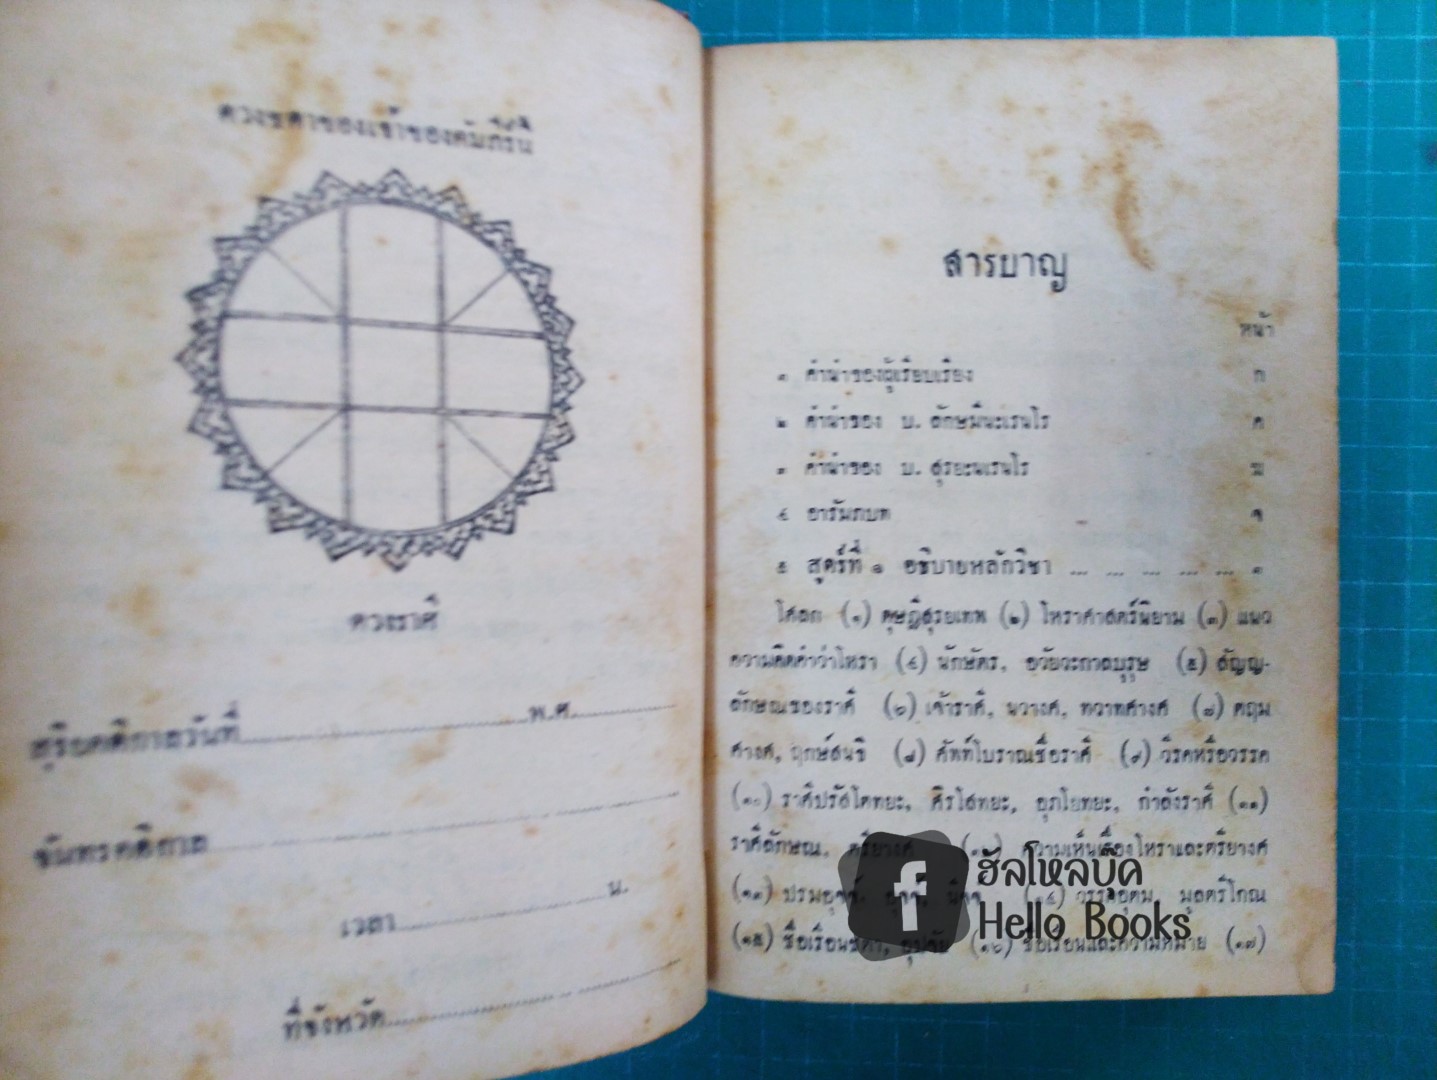 ดวงชตาของเจ้าของคัมภีร์นี้
ดวงราศี
สุริยคติกาลวันที่ พ.ศ.
จันทรคติกาล
เวลา น.
ที่จังหวัด
สารบาญ
หน้า
๑ คำนำของผู้เรียบเรียง ก
๒ คำนำของ บ. ลักษมีนะเรนโร ค
๓ คำนำของ บ. สุรยะนเรนโร ฆ
๔ อารัมภบท จ
๕ สูตร์ที่ ๑ อธิบายหลักวิชา ... ... ... ... ... ๑
โศลก (๑) ดุษฎีสุรยเทพ (๒) โหราศาสตร์นิยาม (๓) แนว
ความคิดคำว่าโหรา (๔) นักษัตร, อวัยวะกาลบุรุษ (๕) สัญญ-
ลักษณของราศี (๖) เจ้าราศี, นวางศ์, ทวาทศางศ์ (๗) ตฤม
ศางศ, ฤกษ์สนธิ (๘) ศัพท์โบราณชื่อราศี (๙) วีรคหรือวรรค
(๑๐) ราศีปรัสโตทยะ, ศิรโสทยะ, อุภโยทยะ, กำลังราศี (๑๑)
ราศีลักษณ, ตรียางศ์ (๑๒) ความเห็นเรื่องโหราและตรียางศ์
(๑๓) ปรมอุจจ์, อุจจ์, นีจจ์ (๑๔) วรรคอุตม, มูลตรีโกณ
(๑๕) ชื่อเรือนชตา, อุปจัย (๑๖) ชื่อเรือนและความหมาย (๑๗)
ฮัลโหลบุ๊ค
Hello Books